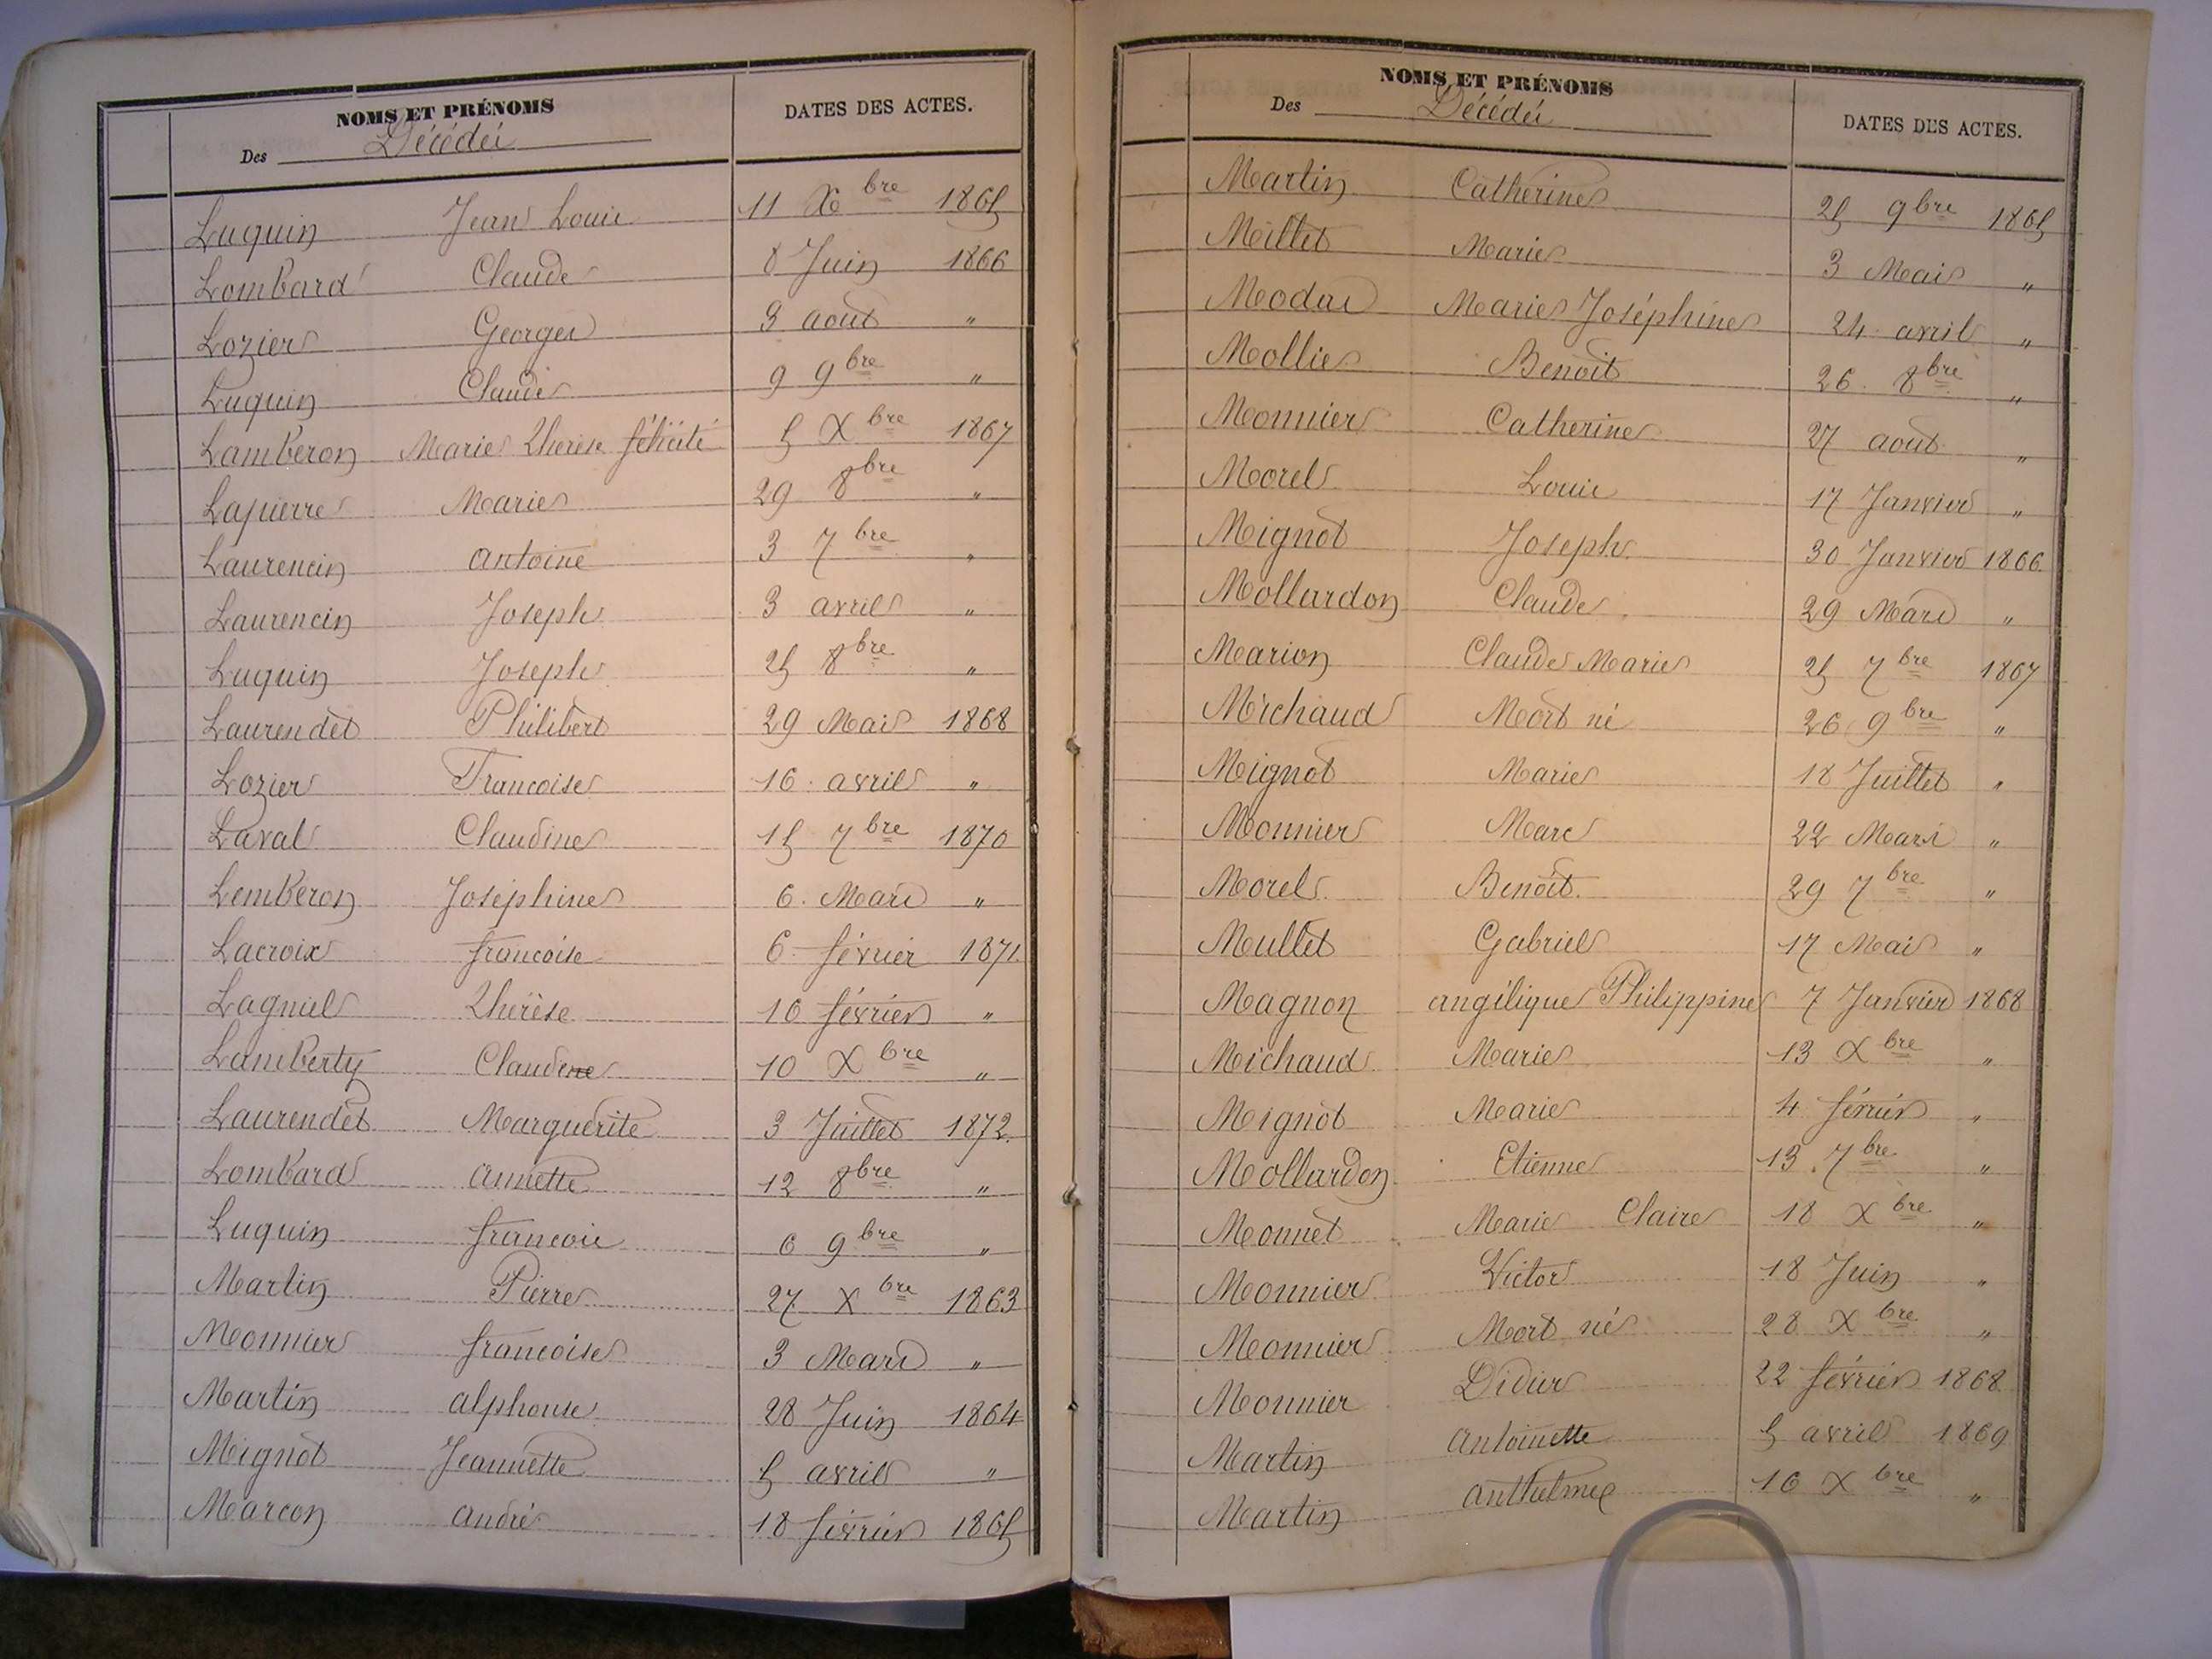 NOMS ET PRÉNOMS
Des Décédés
DATES DES ACTES.
Luquin Jean Louis 11 Xbre 1865
Lombard Claude 8 Juin 1866
Lozier Georges 3 août "
Luquin Claude 9 9bre "
Lamberon Marie Thérèse félicité 5 Xbre 1867
Lapierre Marie 29 8bre "
Laurencin antoine 3 7bre "
Laurencin Joseph 3 avril "
Luquin Joseph 25 8bre "
Laurendet Philibert 29 Mai 1868
Lozier Francoise 16 avril "
Laval Claudine 15 7bre 1870
Lemberon Joséphine 6 Mars "
Lacroix francoise 6 février 1871
Lagniel Thérèse 16 février "
Lamberty Claudine 10 Xbre "
Laurendet Marguerite 3 Juillet 1872
Lombard annette 12 8bre "
Luquin francois 6 9bre "
Martin Pierre 27 Xbre 1863
Monnier francoise 3 Mars "
Martin alphonse 28 Juin 1864
Mignot Jeannette 5 avril "
Marcon andré 18 février 1865
NOMS ET PRÉNOMS
Des Décédés
DATES DES ACTES.
Martin Catherine 25 9bre 1865
Millet Marie 3 Mai "
Modas Marie Joséphine 24 avril "
Mollie Benoit 26 8bre "
Monnier Catherine 27 août "
Morel Louis 17 Janvier "
Mignot Joseph 30 Janvier 1866
Mollardon Claude 29 Mars "
Marion Claude Marie 25 7bre 1867
Michaud Mort né 26 9bre "
Mignot Marie 18 Juillet "
Monnier Marc 22 Mars "
Morel Benoit 29 7bre "
Mullet Gabriel 17 Mai "
Magnon angélique Philippine 7 Janvier 1868
Michaud Marie 13 Xbre "
Mignot Marie 4 février "
Mollardon Etienne 13 7bre "
Monnet Marie Claire 18 Xbre "
Monnier Victor 18 Juin "
Monnier Mort né 28 Xbre "
Monnier Didier 22 février 1868
Martin antoinette 5 avril 1869
Martin anthelme 16 Xbre "